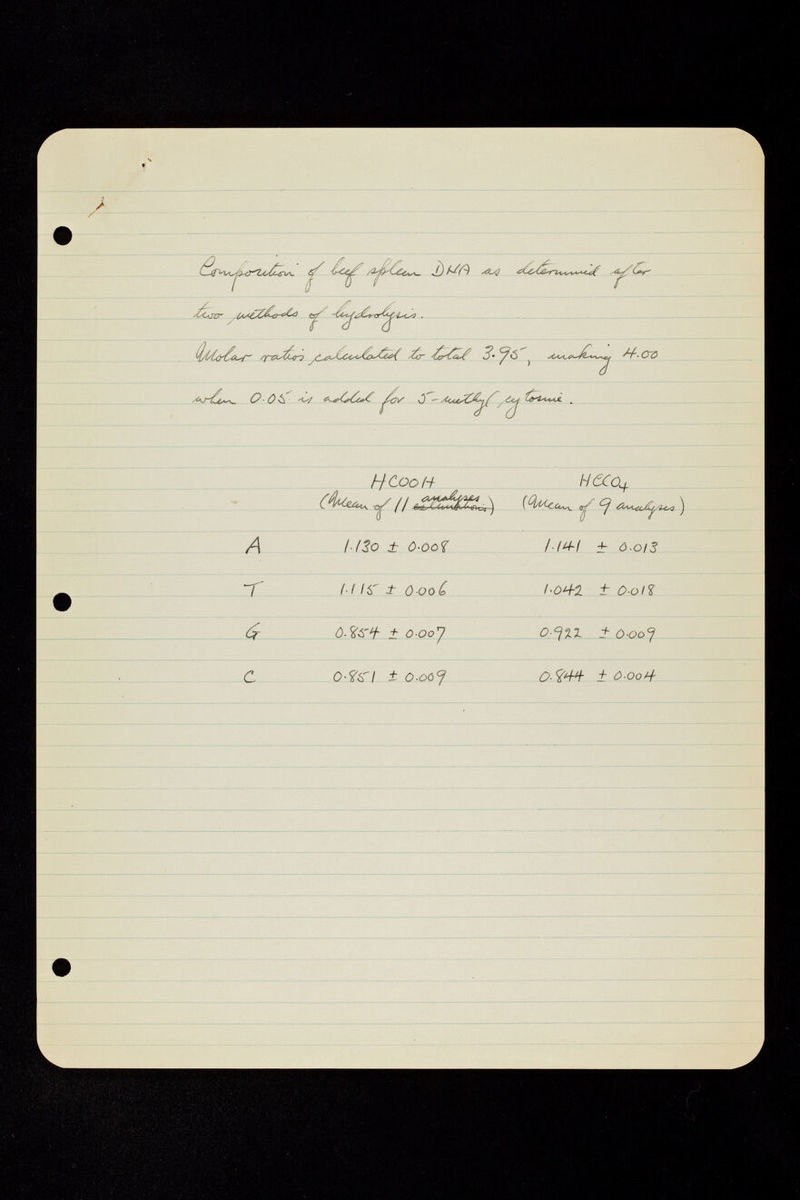 Composition of beef spleen DNA as determined after
two methods of hydrolysis.
Molar ratios calculated to total 3.95, making 4.00
when 0.05 is added for 5-methyl cytosine.
HCOOH HClO4
(Mean of 11 estimations analyses) (Mean of 9 analyses)
A 1.130 ± 0.008 1.141 ± 0.013
T 1.115 ± 0.006 1.042 ± 0.018
G 0.854 ± 0.007 0.922 ± 0.009
C 0.851 ± 0.009 0.844 ± 0.004